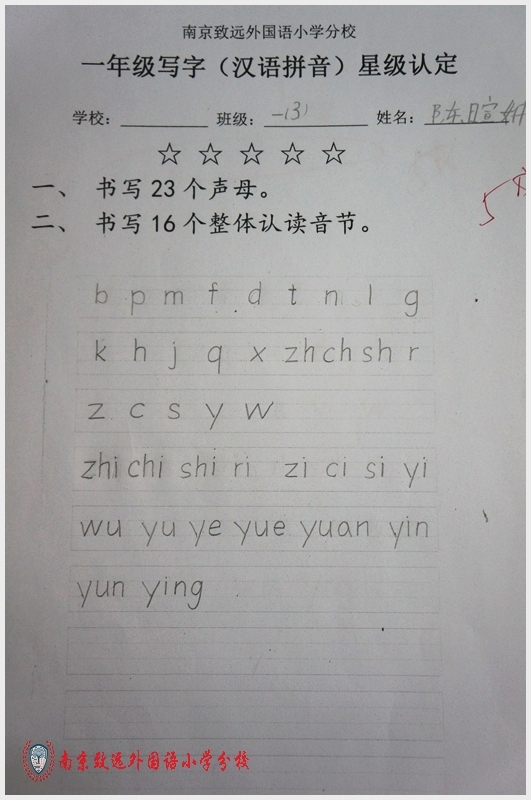 南京致远外国语小学分校
一年级写字（汉语拼音）星级认定
学校： 班级：一（3） 姓名：陈暄妍
☆ ☆ ☆ ☆ ☆
一、 书写 23 个声母。
二、 书写 16 个整体认读音节。
b p m f d t n l g
k h j q x zh ch sh r
z c s y w
zhi chi shi ri zi ci si yi
wu yu ye yue yuan yin
yun ying
南京致远外国语小学分校